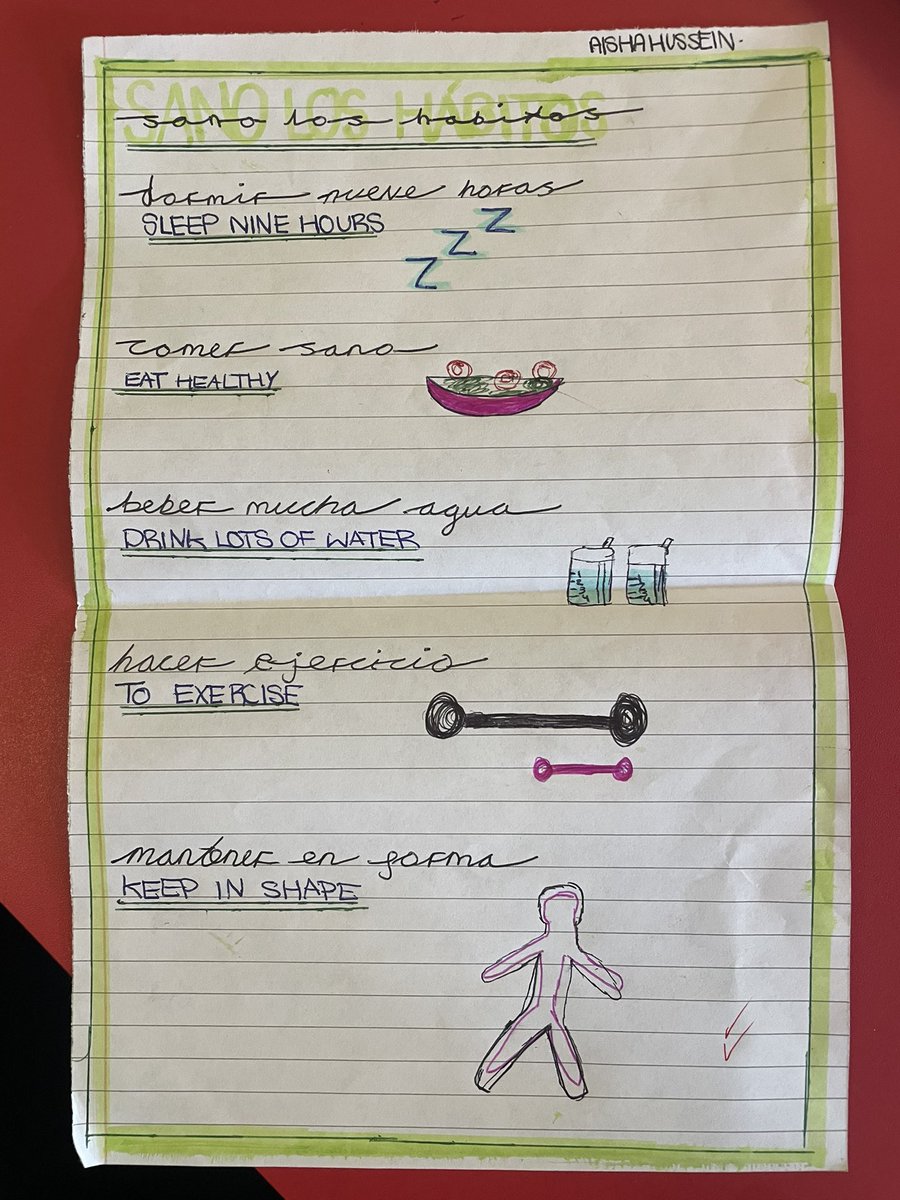 AISHA HUSSEIN.
SANO LOS HÁBITOS
sano los habitos
dormir nueve horas
SLEEP NINE HOURS
Z Z Z
comer sano
EAT HEALTHY
beber mucha agua
DRINK LOTS OF WATER
hacer ejercicio
TO EXERCISE
mantener en forma
KEEP IN SHAPE